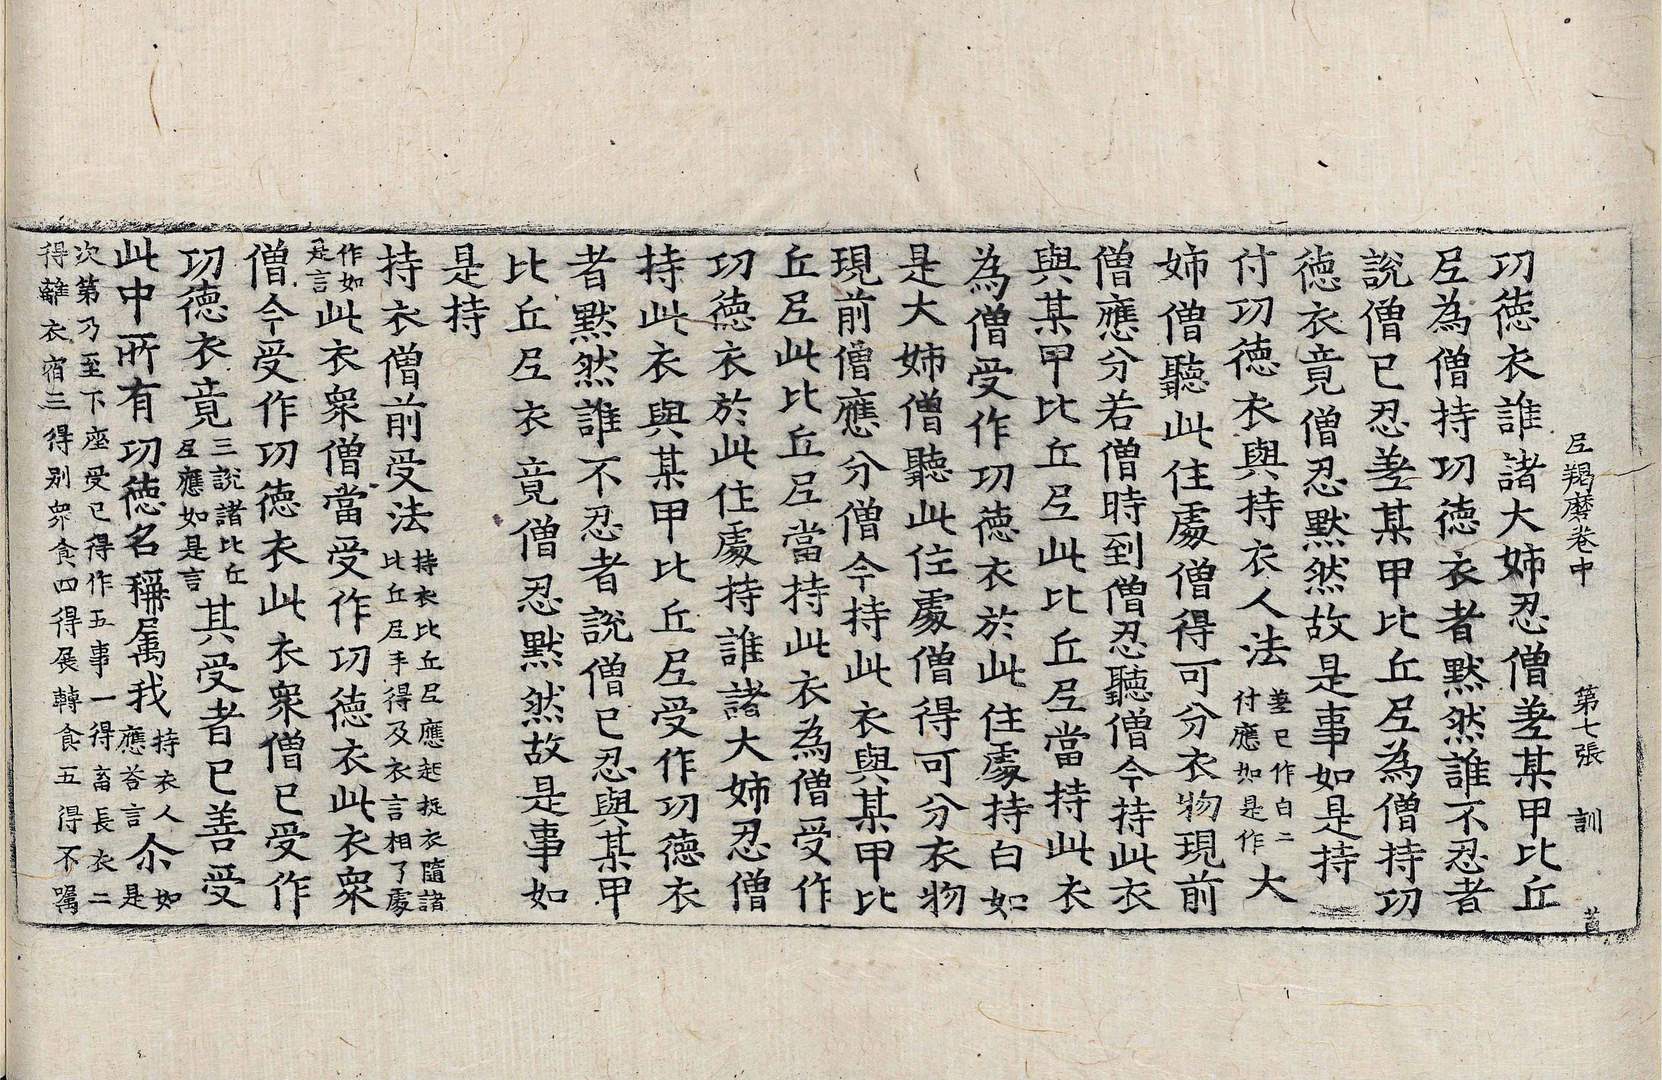 尼羯磨卷中　第七張　訓
功徳衣誰諸大姉忍僧差某甲比丘
尼為僧持功徳衣者黙然誰不忍者
說僧已忍差某甲比丘尼為僧持功
徳衣竟僧忍黙然故是事如是持
付功徳衣與持衣人法差已作白二付應如是作大
姉僧聽此住處僧得可分衣物現前
僧應分若僧時到僧忍聽僧今持此衣
與某甲比丘尼此比丘尼當持此衣
為僧受作功徳衣於此住處持白如
是大姉僧聽此住處僧得可分衣物
現前僧應分僧今持此衣與某甲比
丘尼此比丘尼當持此衣為僧受作
功徳衣於此住處持誰諸大姉忍僧
持此衣與某甲比丘尼受作功徳衣
者黙然誰不忍者說僧已忍與某甲
比丘尼衣竟僧忍黙然故是事如
是持
持衣僧前受法持衣比丘尼應起捉衣隨諸比丘尼手得及衣言相了處
作如是言此衣衆僧當受作功徳衣此衣衆
僧今受作功徳衣此衣衆僧已受作
功徳衣竟三說諸比丘尼應如是言其受者已善受
此中所有功徳名稱属我持衣人應荅言尒如是
次第乃至下座受已得作五事一得畜長衣二
得離衣宿三得别衆食四得展轉食五得不囑